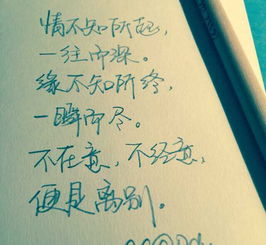 情不知所起,
一往而深。
缘不知所终,
一瞬而尽。
不在意,不经意,
便是离别。